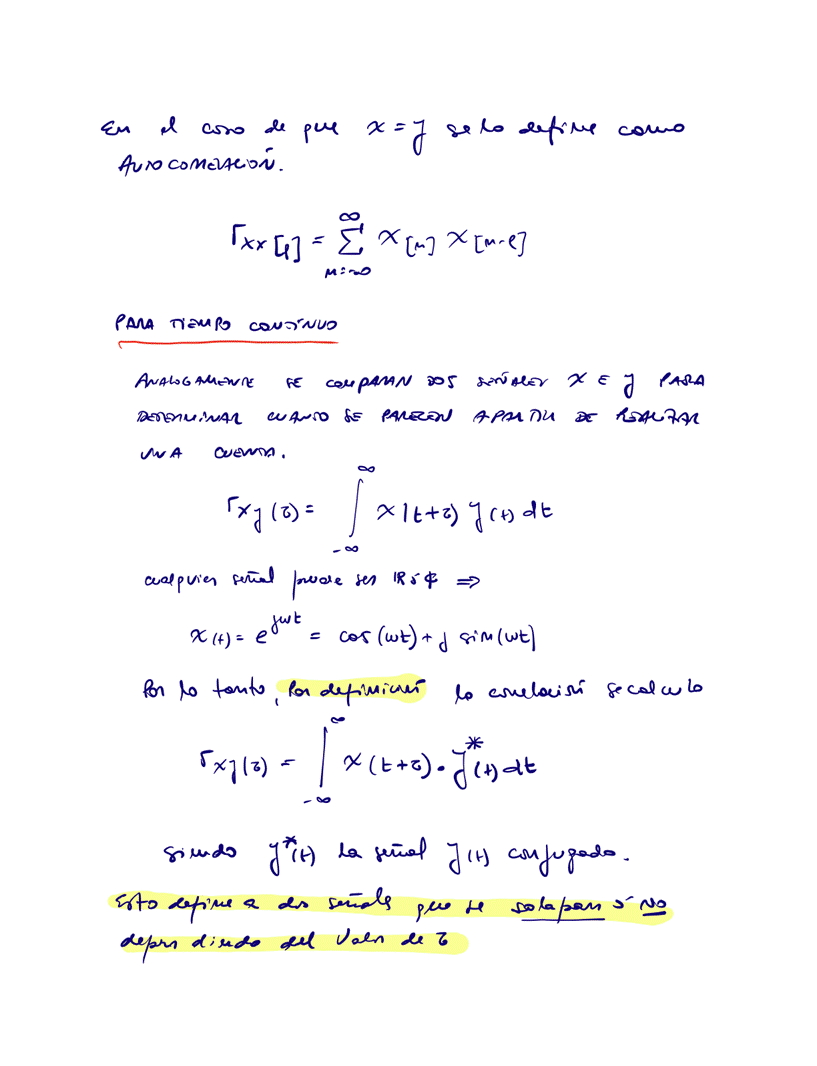 En el caso de que x = y se lo define como
AUTOCORRELACIÓN.
r_xx[l] = ∑_{n=-∞}^{∞} x[n] x[n-l]
PARA TIEMPO CONTÍNUO
ANALOGAMENTE SE COMPARAN DOS SEÑALES x E y PARA
DETERMINAR CUANTO SE PARECEN A PARTIR DE REALIZAR
UNA CUENTA.
r_xy(τ) = ∫_{-∞}^{∞} x(t+τ) y(t) dt
cualquier señal puede ser ℝ ó ℂ ⇒
x(t) = e^{jωt} = cos(ωt) + j sin(ωt)
Por lo tanto, por definición la correlación se calcula
r_xy(τ) = ∫_{-∞}^{∞} x(t+τ) · y*(t) dt
siendo y*(t) la señal y(t) conjugada.
Esto define a dos señales que se solapan ó no
dependiendo del valor de τ